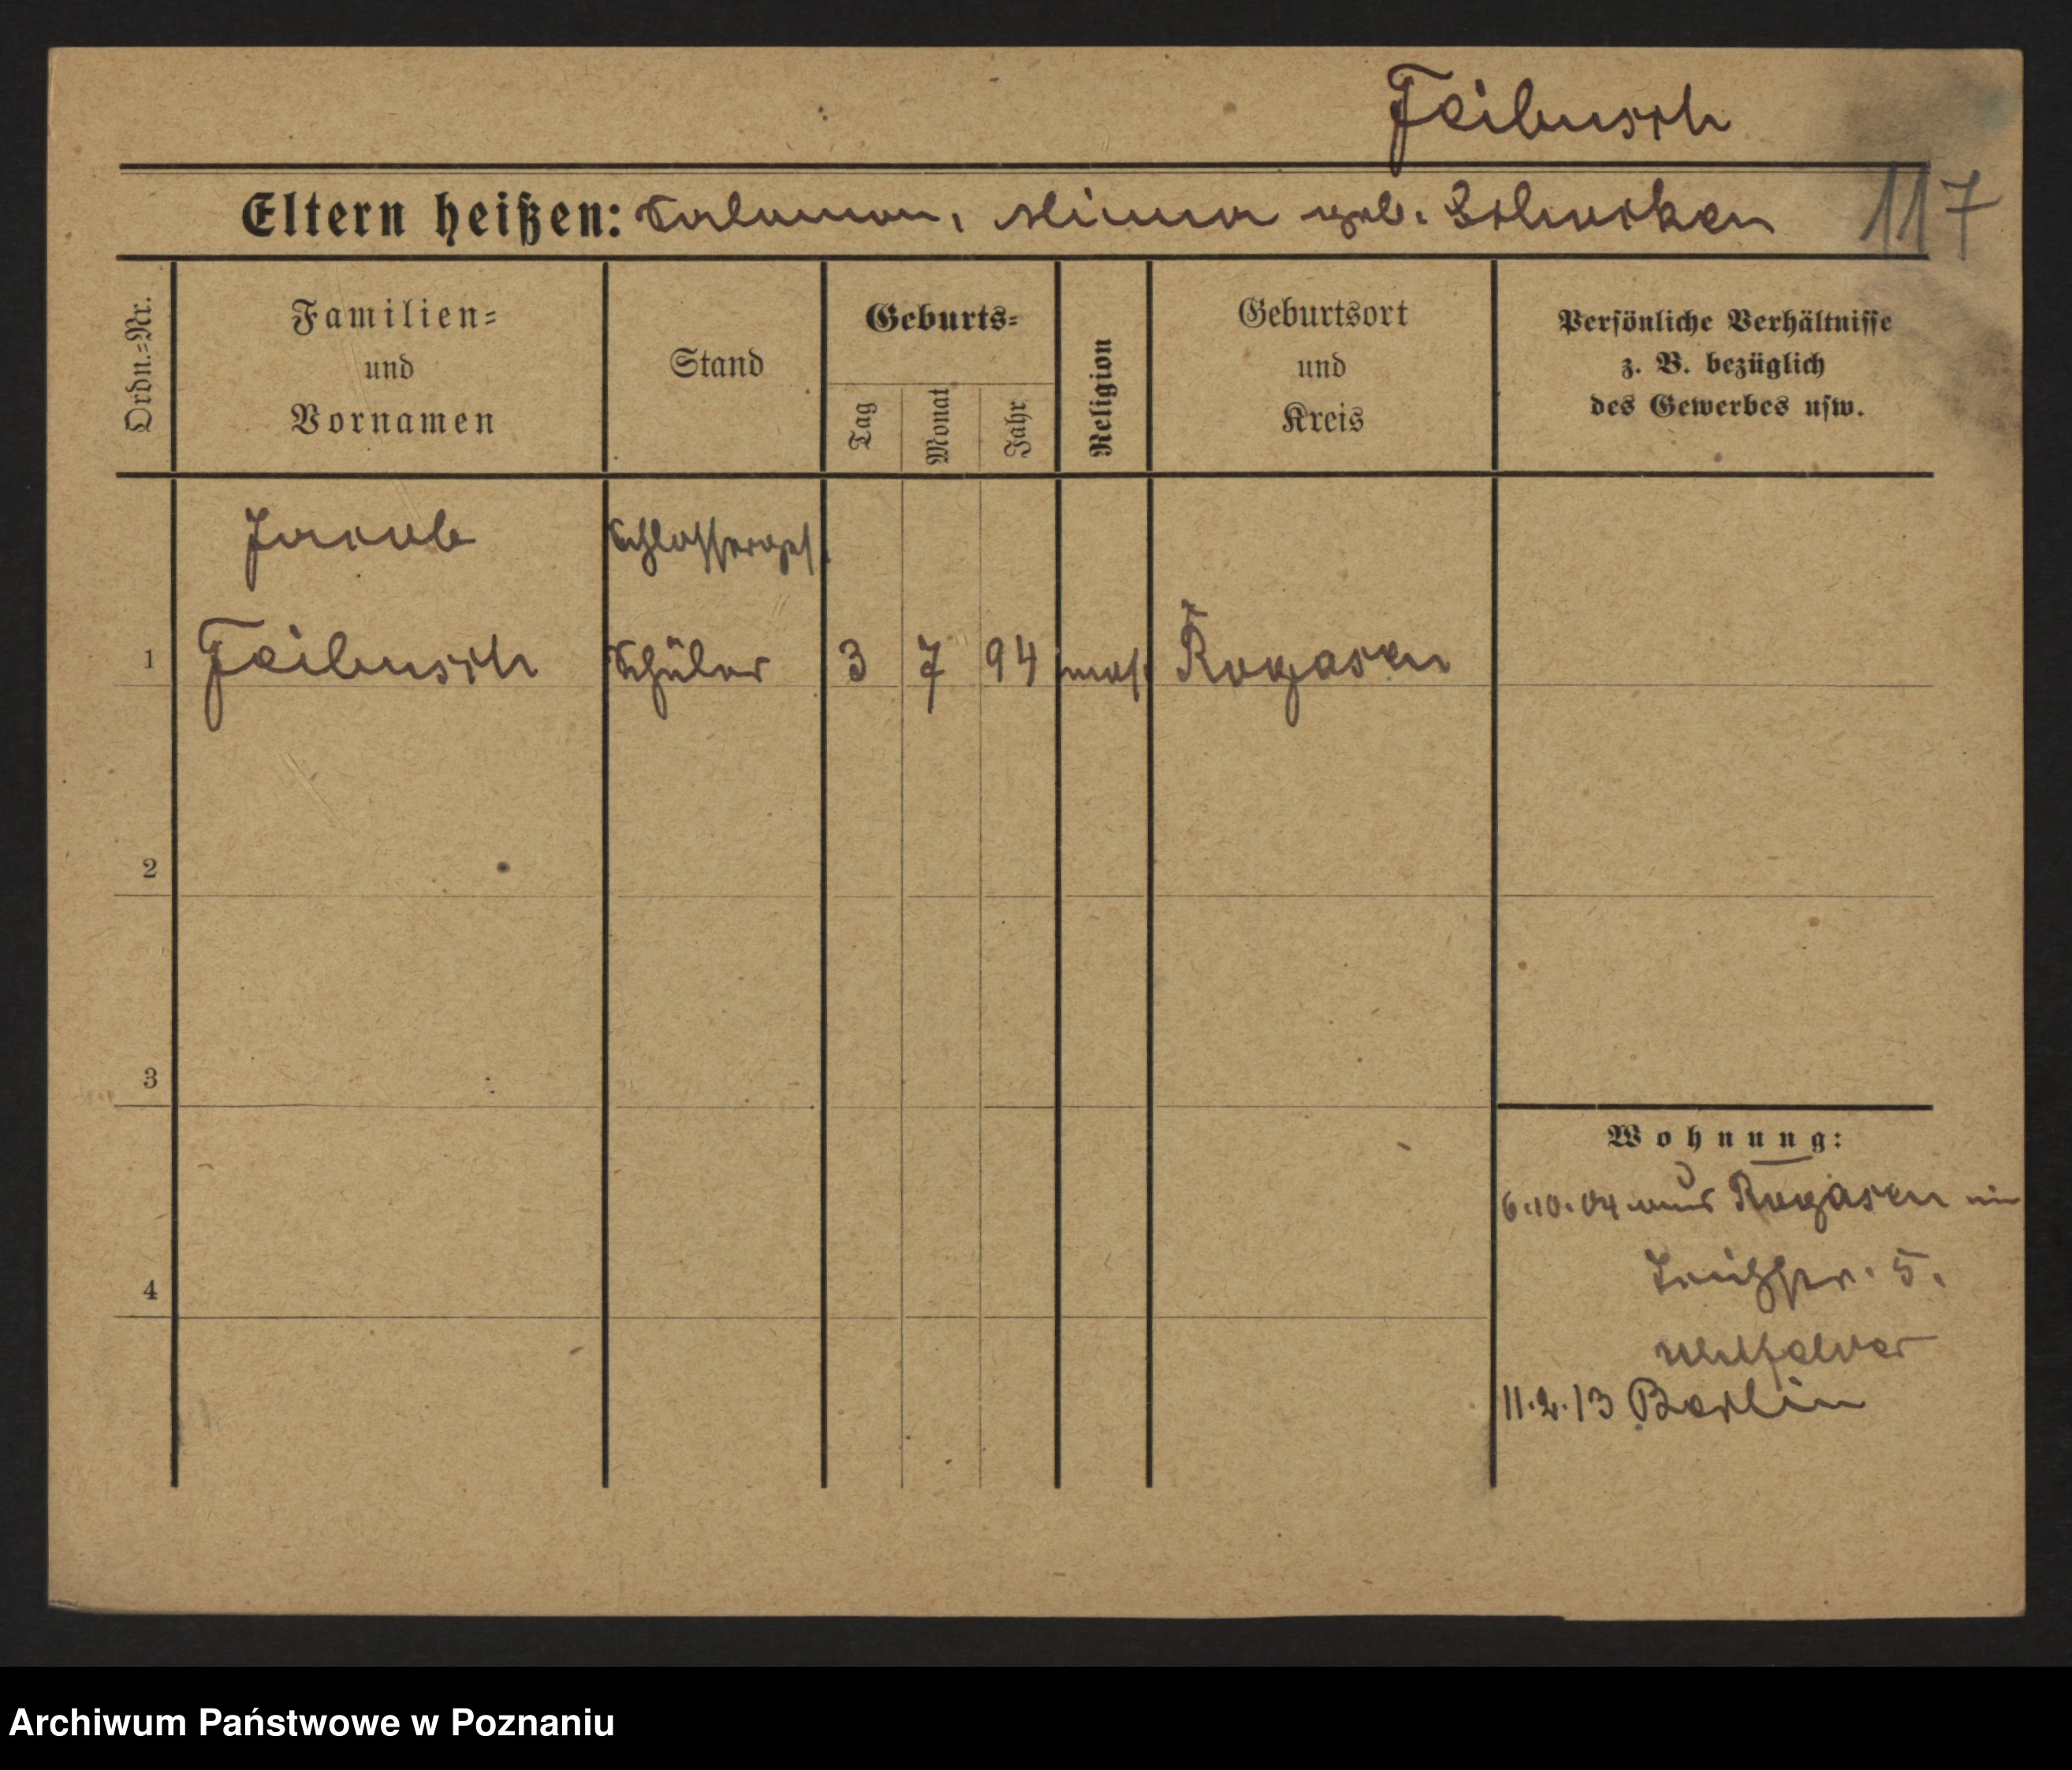 Feibusch
Eltern heißen: Salomon, Minna geb.
117
Ordn.=Nr.
Familien=
und
Vornamen
Stand
Geburts=
Tag
Monat
Jahr
Religion
Geburtsort
und
Kreis
Persönliche Verhältnisse
z. B. bezüglich
des Gewerbes usw.
Jacob
Schlosserges.
1 Feibusch Schüler 3 7 94 mos. Rogasen
2
3
4
Wohnung:
6.10.04 aus Rogasen in
5.
11.2.13 Berlin
Archiwum Państwowe w Poznaniu